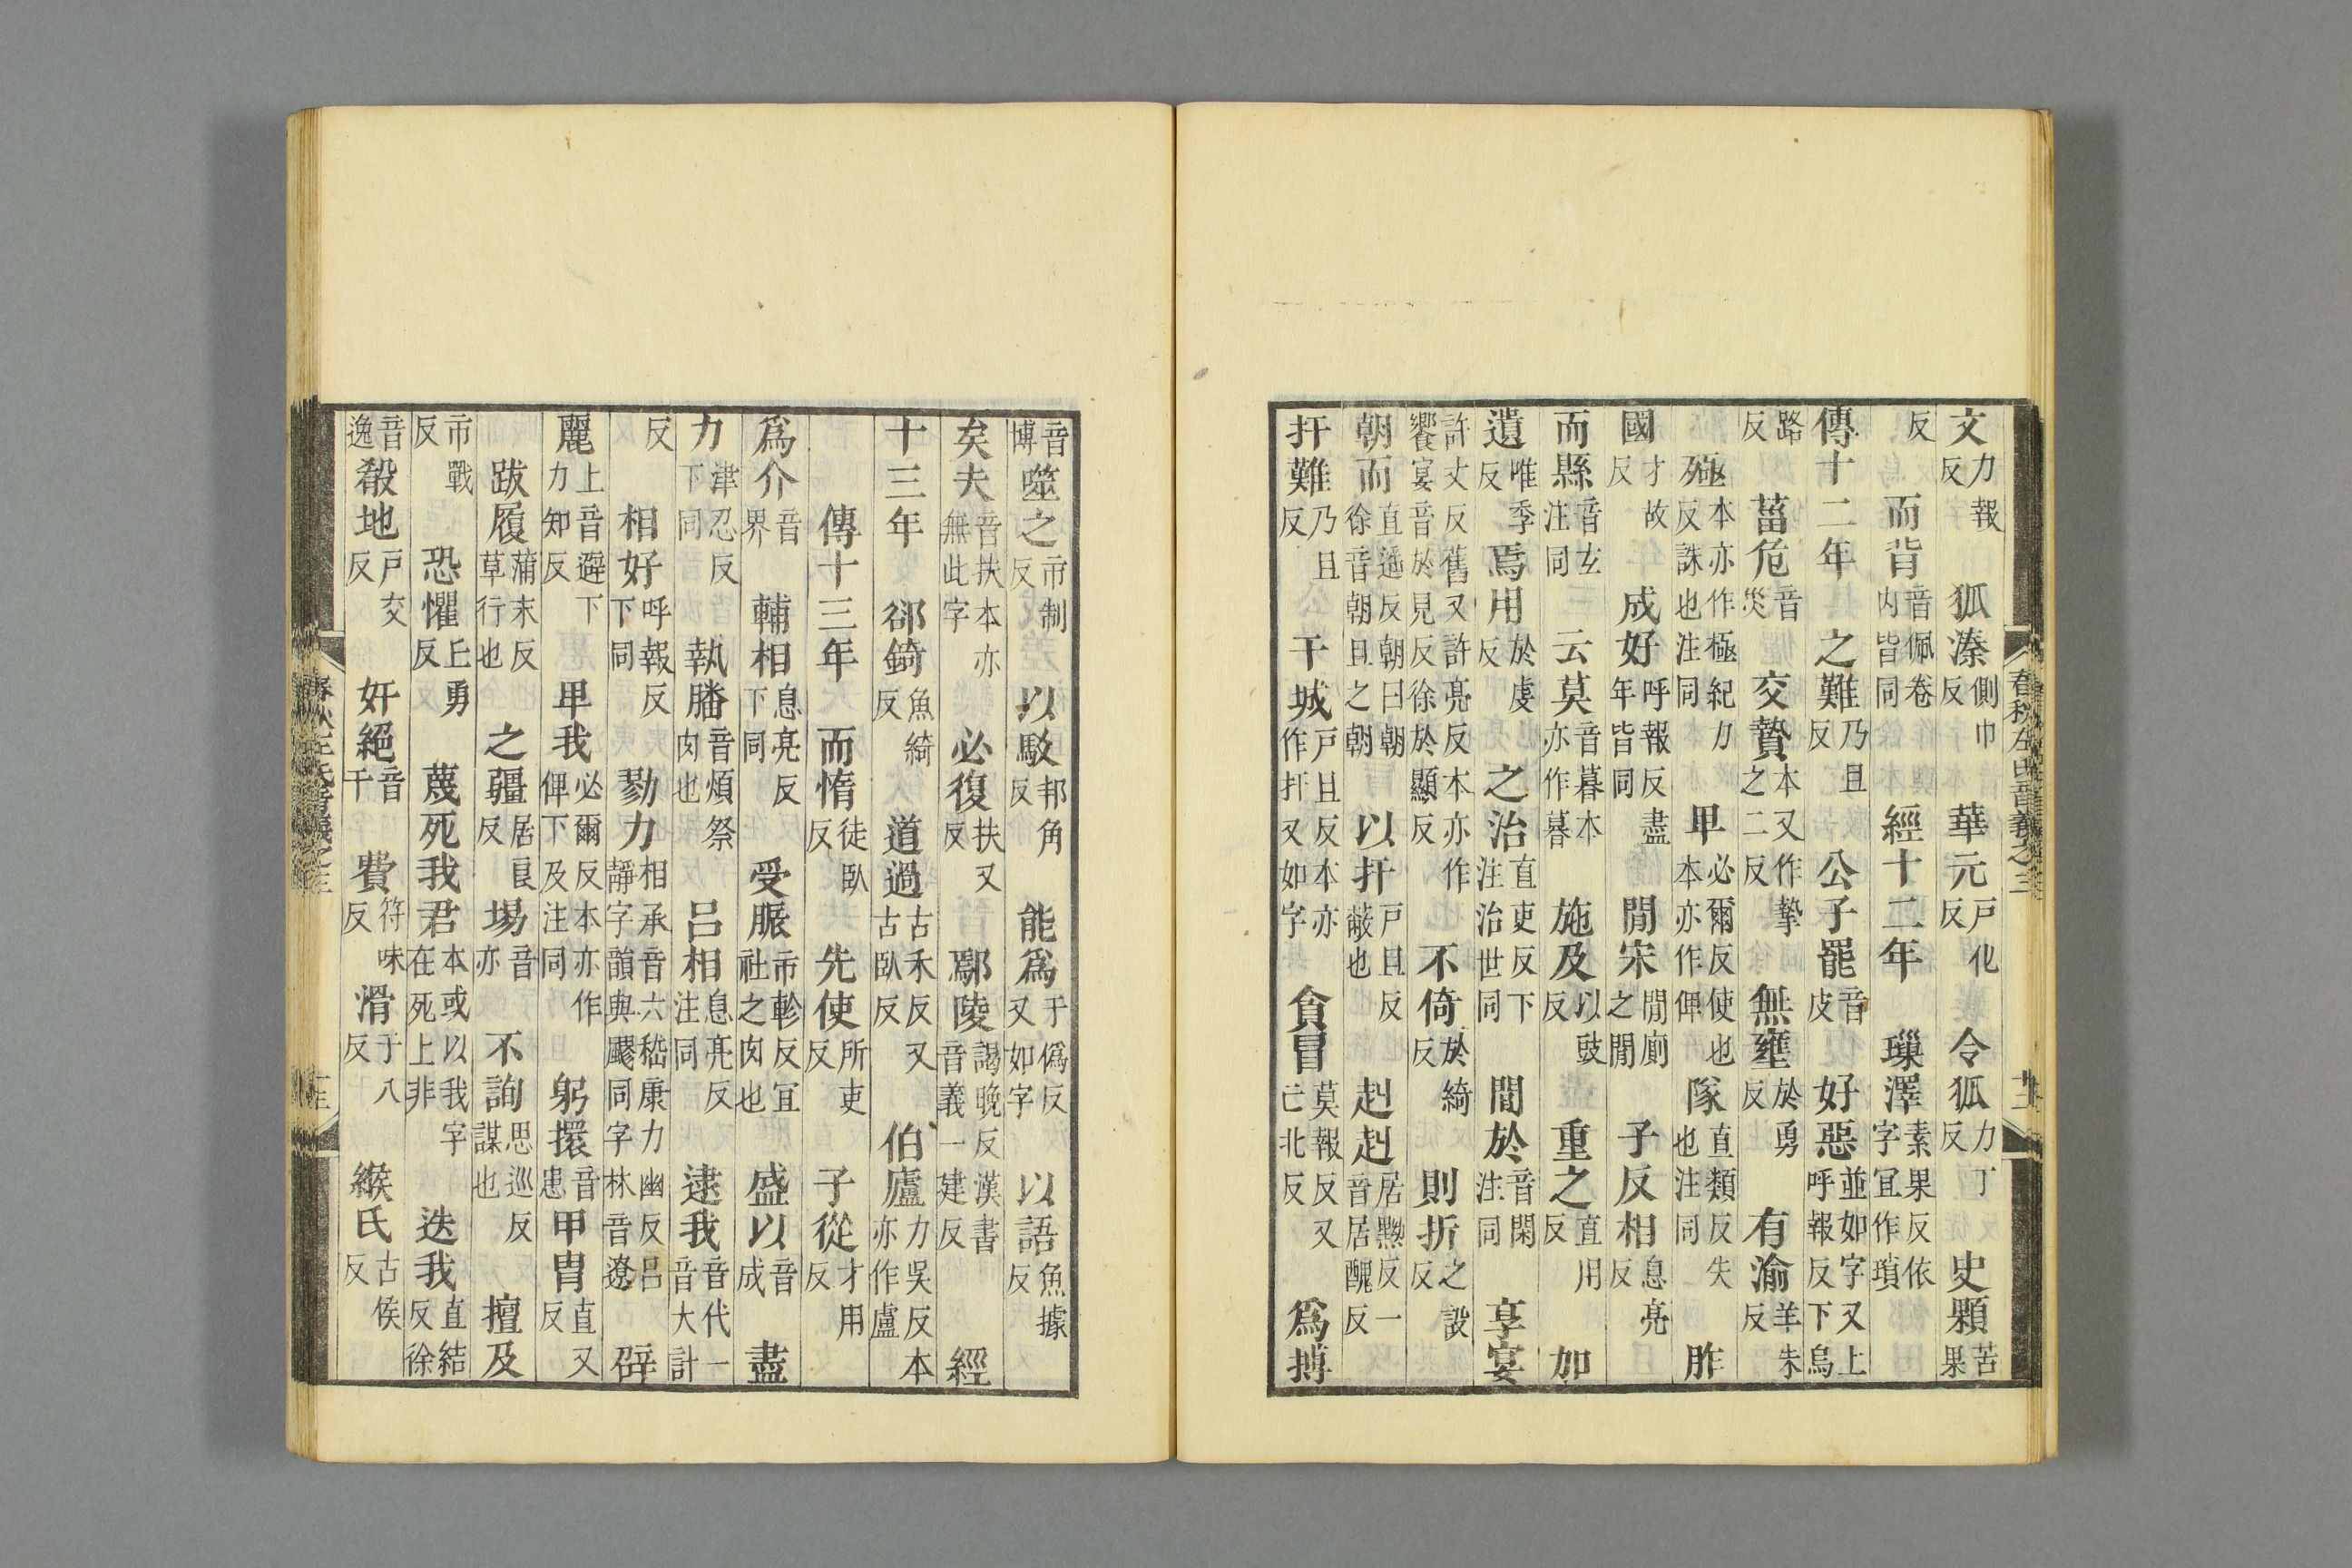 文力報反　狐溱側巾反　華元戶化反　令狐力丁反　史顆苦果
反　而背音佩卷内皆同　經十二年　璅澤素果反依字宜作瑣
傳十二年　之難乃旦反　公子罷音皮　好惡並如字又上呼報反下烏
路反　菑危音災　交贄本又作摯之二反　無壅於勇反　有渝羊朱反
殛本亦作極紀力反誅也注同　俾必爾反使也本亦作俾　隊直類反失也注同　胙
才故反　成好呼報反盡年皆同　閒宋閒廁之閒　子反相息亮反
而縣音玄注同　云莫音暮本亦作暮　施及以豉反　重之直用反　加
遺唯季反　焉用於虔反　之治直吏反下注治世同　閒於音閑注同　享宴
許丈反舊又許亮反本亦作饗宴音於見反徐於顯反　不倚於綺反　則折之設反
朝而直遥反朝曰朝徐音朝旦之朝　以扞戶旦反蔽也　赳赳居黝反一音居醜反
扞難乃旦反　干城戶旦反本亦作扞又如字　貪冒莫報反又亡北反　爲搏
音博　噬之市制反　以駮邦角反　能爲于僞反又如字　以語魚據反
矣夫音扶本亦無此字　必復扶又反　鄢陵謁晚反漢書音義一建反　經
十三年　郤錡魚綺反　道過古禾反又古臥反　伯廬力吳反本亦作盧
傳十三年　而惰徒臥反　先使所吏反　子從才用反
爲介音界　輔相息亮反下同　受脤市軫反宜社之肉也　盛以音成　盡
力津忍反下同　執膰音煩祭肉也　呂相息亮反注同　逮我音代一音大計
反　相好呼報反下同　勠力相承音六嵇康力幽反呂靜字韻與飂同字林音遼　辟
麗上音避下力知反　俾我必爾反本亦作俾下及注同　躬擐音患　甲胄直又反
跋履蒲末反草行也　之疆居良反　埸音亦　不詢思巡反謀也　擅及
市戰反　恐懼丘勇反　蔑死我君本或以我字在死上非　迭我直結反徐
音逸　殽地戶交反　奸絕音干　費符味反　滑于八反　緱氏古侯反
春秋左氏音義之三　十二